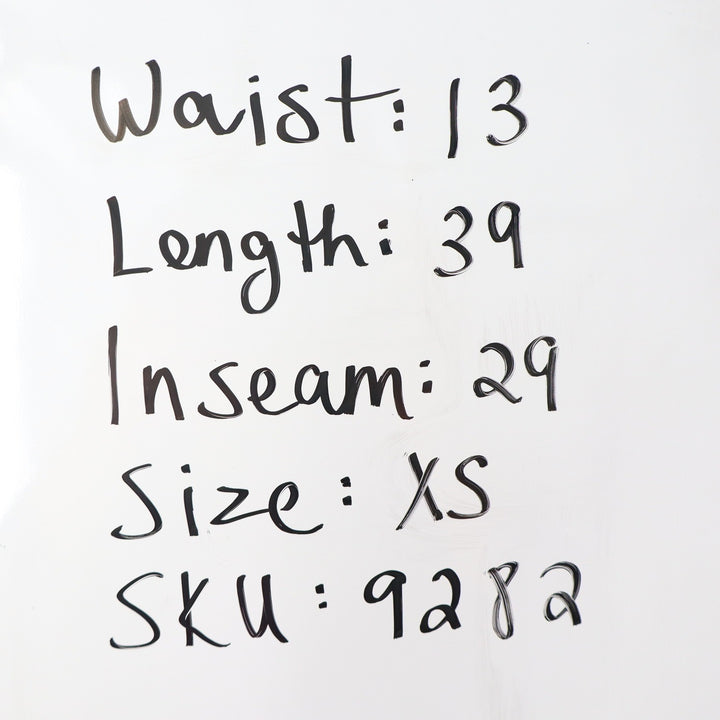 Waist: 13
Length: 39
Inseam: 29
Size: XS
SKU: 9282